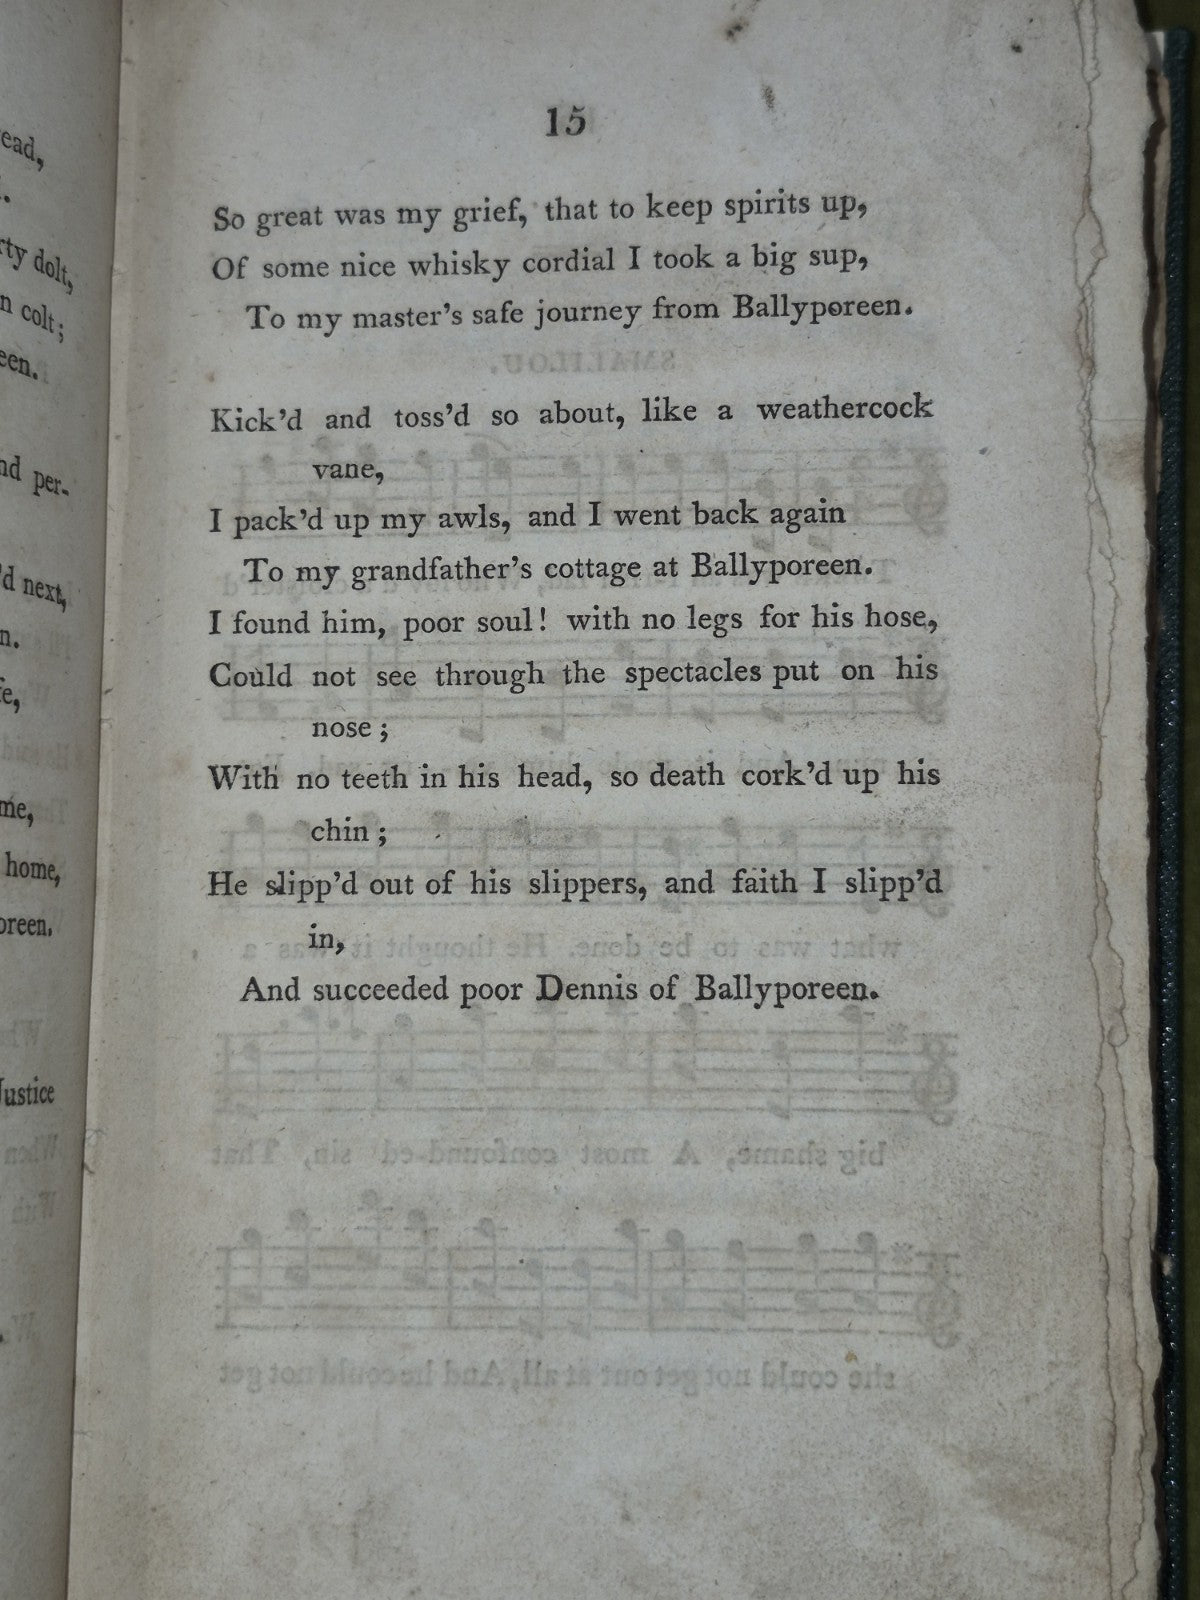 ead,
rty dolt,
n colt;
een.
nd per-
'd next,
n.
fe,
me,
home,
oreen.
Justice
15
So great was my grief, that to keep spirits up,
Of some nice whisky cordial I took a big sup,
To my master's safe journey from Ballyporeen.
SMALILOU.
Kick'd and toss'd so about, like a weathercock
vane,
I pack'd up my awls, and I went back again
To my grandfather's cottage at Ballyporeen.
I found him, poor soul! with no legs for his hose,
Could not see through the spectacles put on his
nose;
With no teeth in his head, so death cork'd up his
chin;
He slipp'd out of his slippers, and faith I slipp'd
in,
what was to be done. He thought it was a
And succeeded poor Dennis of Ballyporeen.
big shame, A most confound-ed sin, That
she could not get out at all, And he could not get